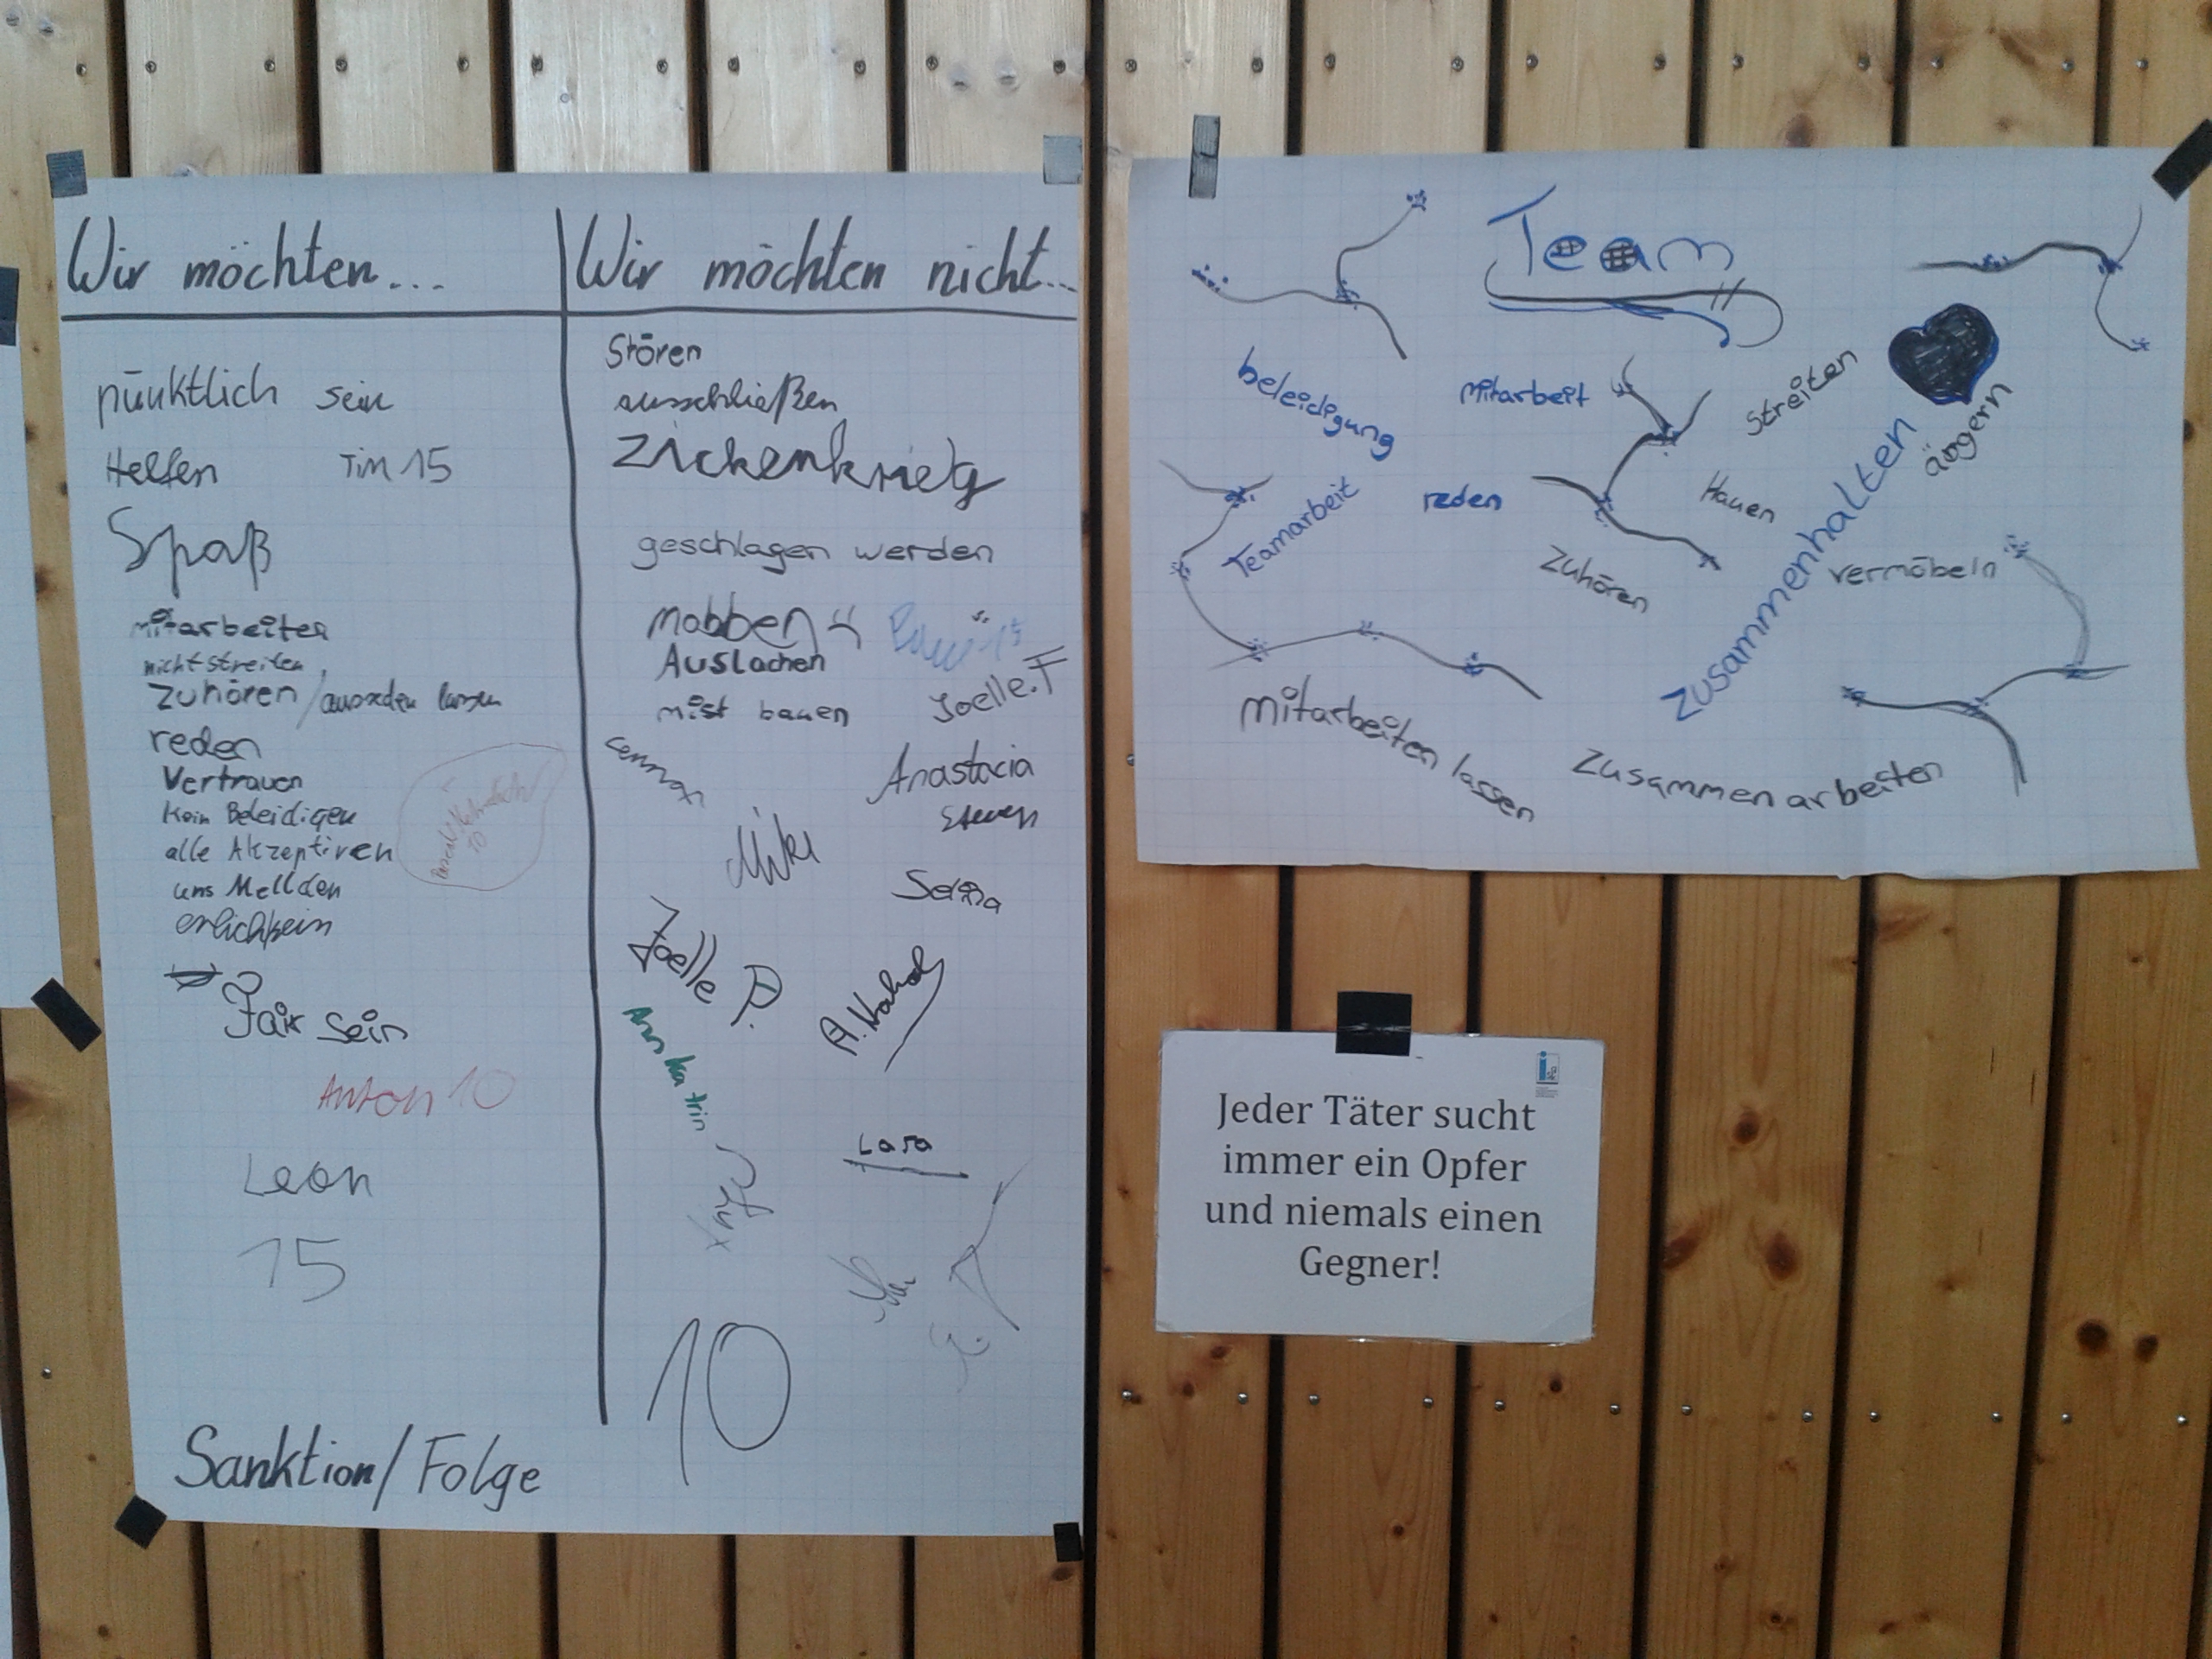 Wir möchten...
pünktlich sein
Helfen Tim 15
Spaß
mitarbeiten
nicht streiten
Zuhören / ausreden lassen
reden
Vertrauen
Kein Beleidigen
alle Akzeptiren
uns Mellden
erlich sein
Fair sein
Anton 10
Leon
15
Sanktion/Folge
Wir möchten nicht...
Stören
ausschließen
Zickenkrieg
geschlagen werden
mobben
Auslachen
mist bauen
Joelle.F
Anastacia
Steven
Miki
Joelle P.
Lara
10
Team
beleidigung
mitarbeit
Streiten
ärgern
Teamarbeit
reden
Hauen
Zuhören
Zusammenhalten
vermöbeln
mitarbeiten lassen
Zusammen arbeiten
Jeder Täter sucht
immer ein Opfer
und niemals einen
Gegner!